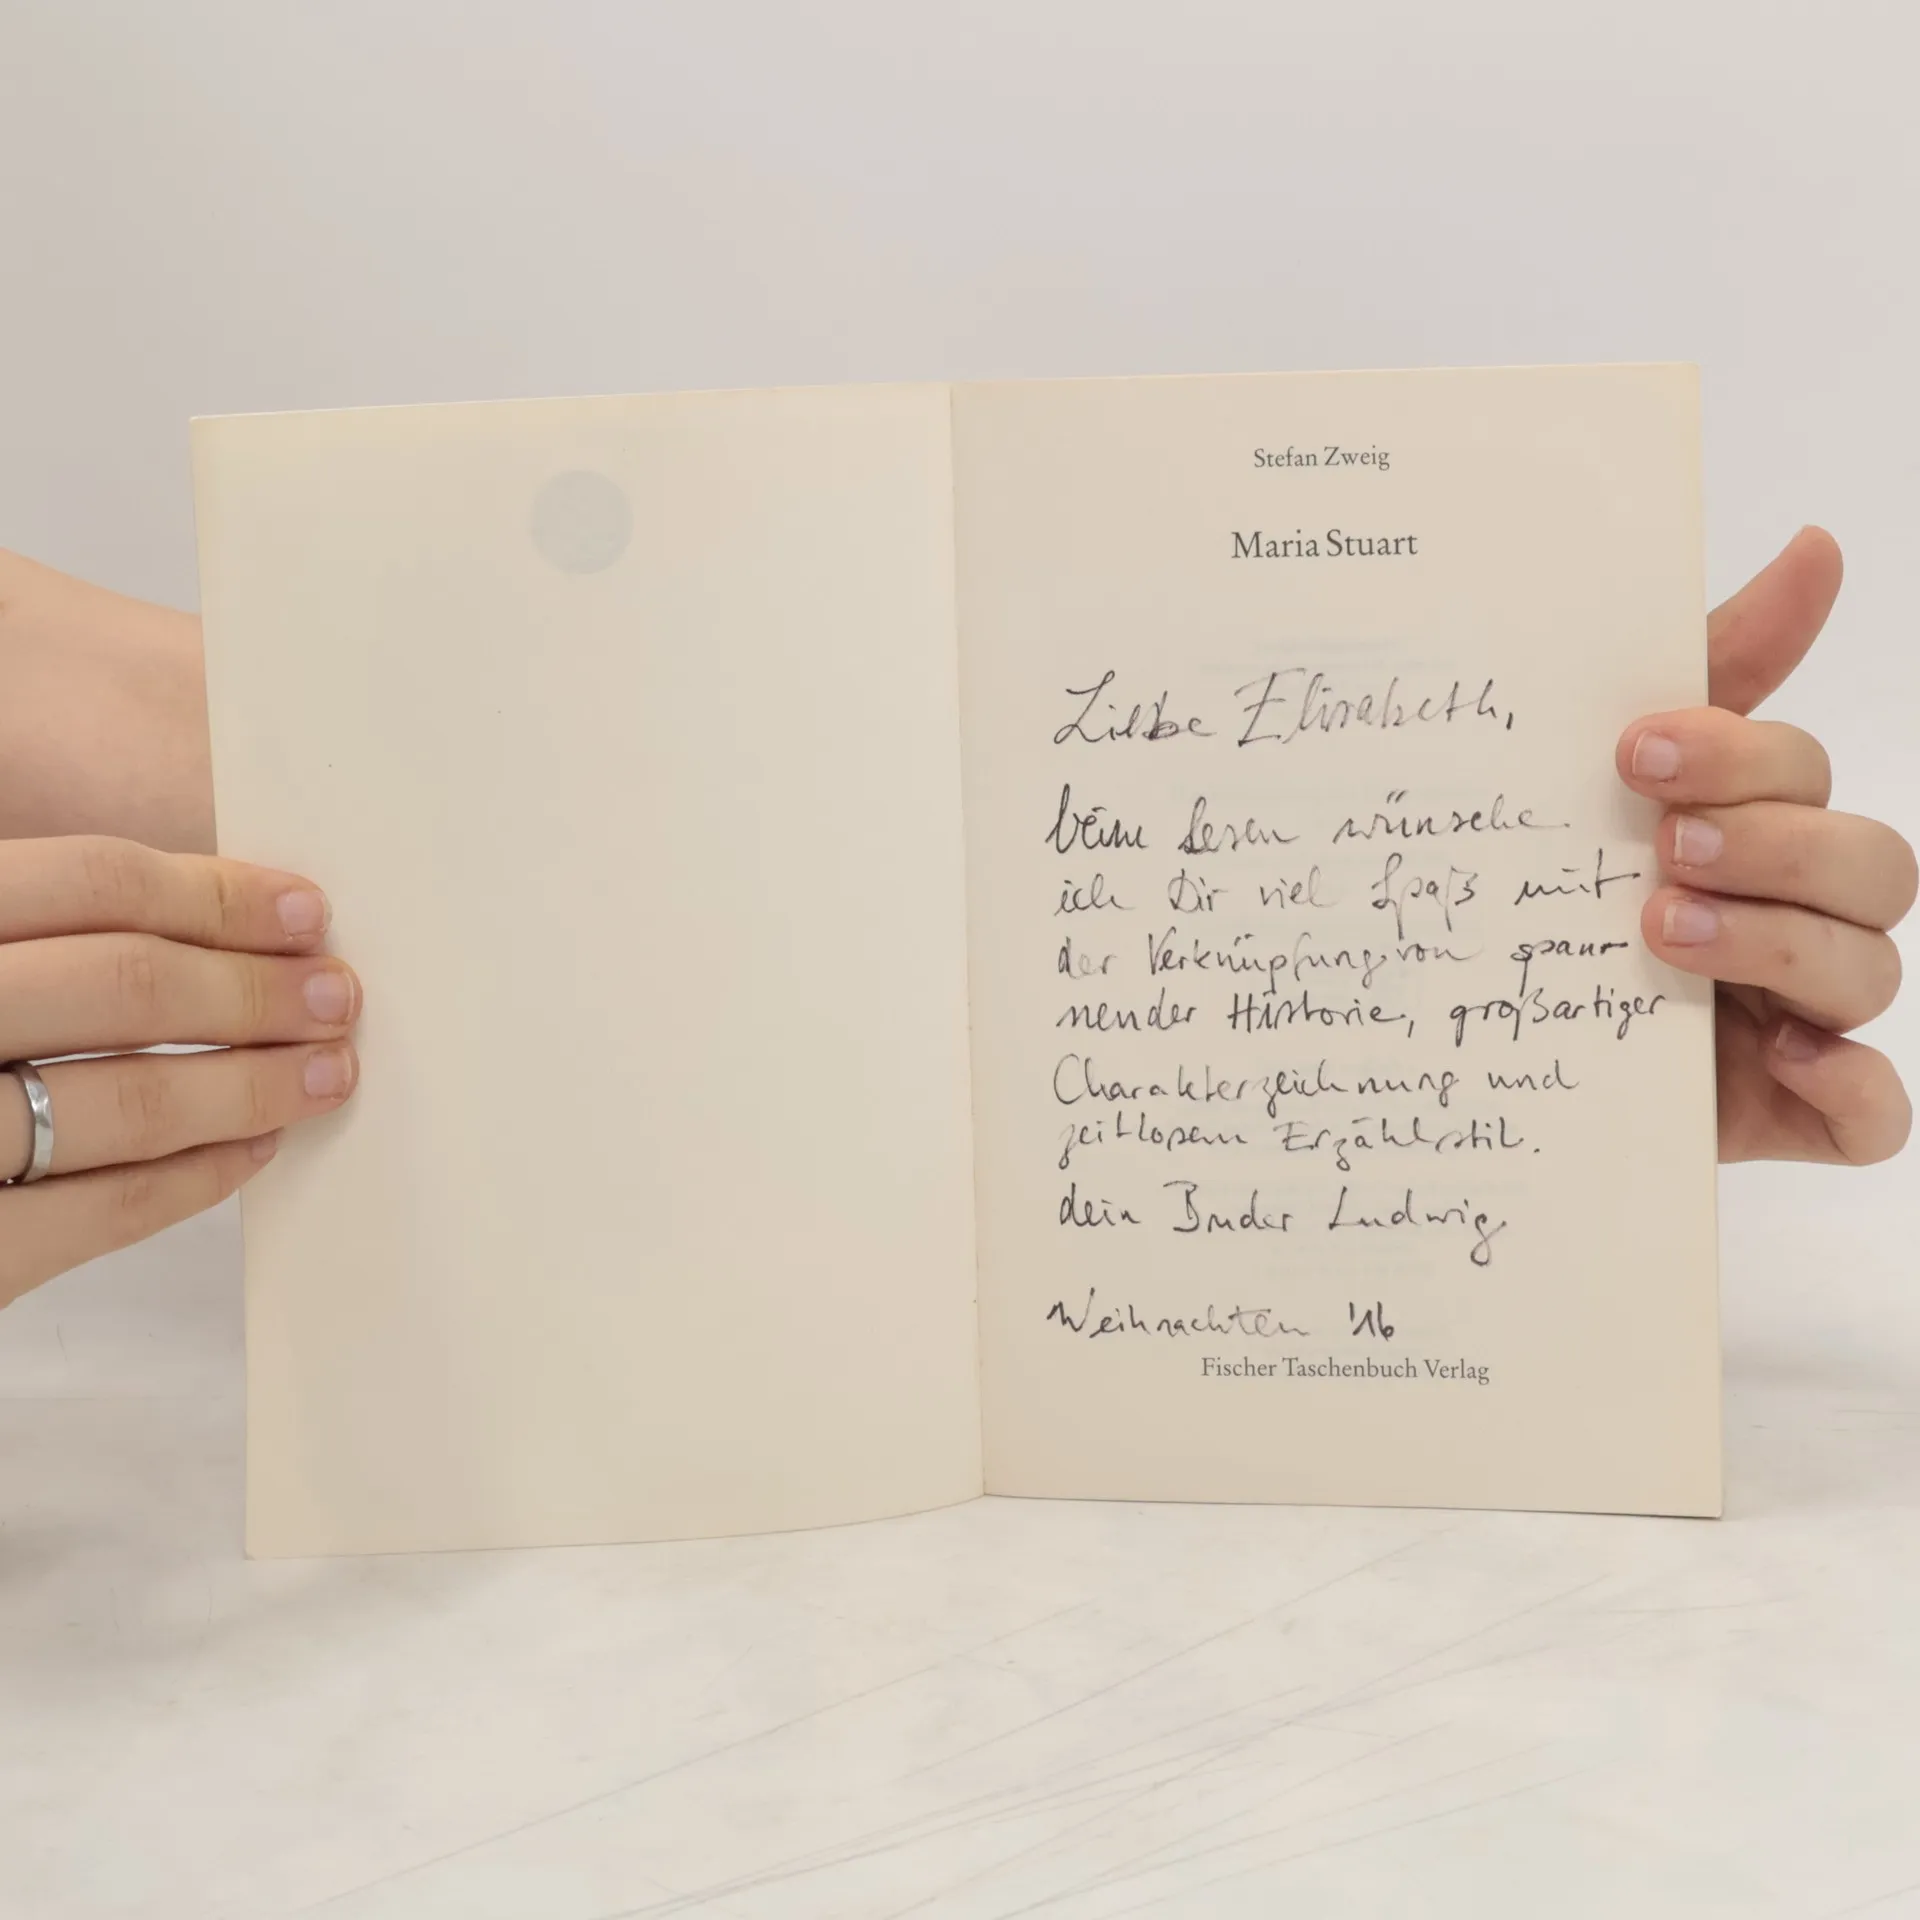 Stefan Zweig
Maria Stuart
Liebe Elisabeth,
beim Lesen wünsche
ich Dir viel Spaß mit
der Verknüpfung von span-
nender Historie, großartiger
Charakterzeichnung und
zeitlosem Erzählstil.
dein Bruder Ludwig
Weihnachten '16
Fischer Taschenbuch Verlag